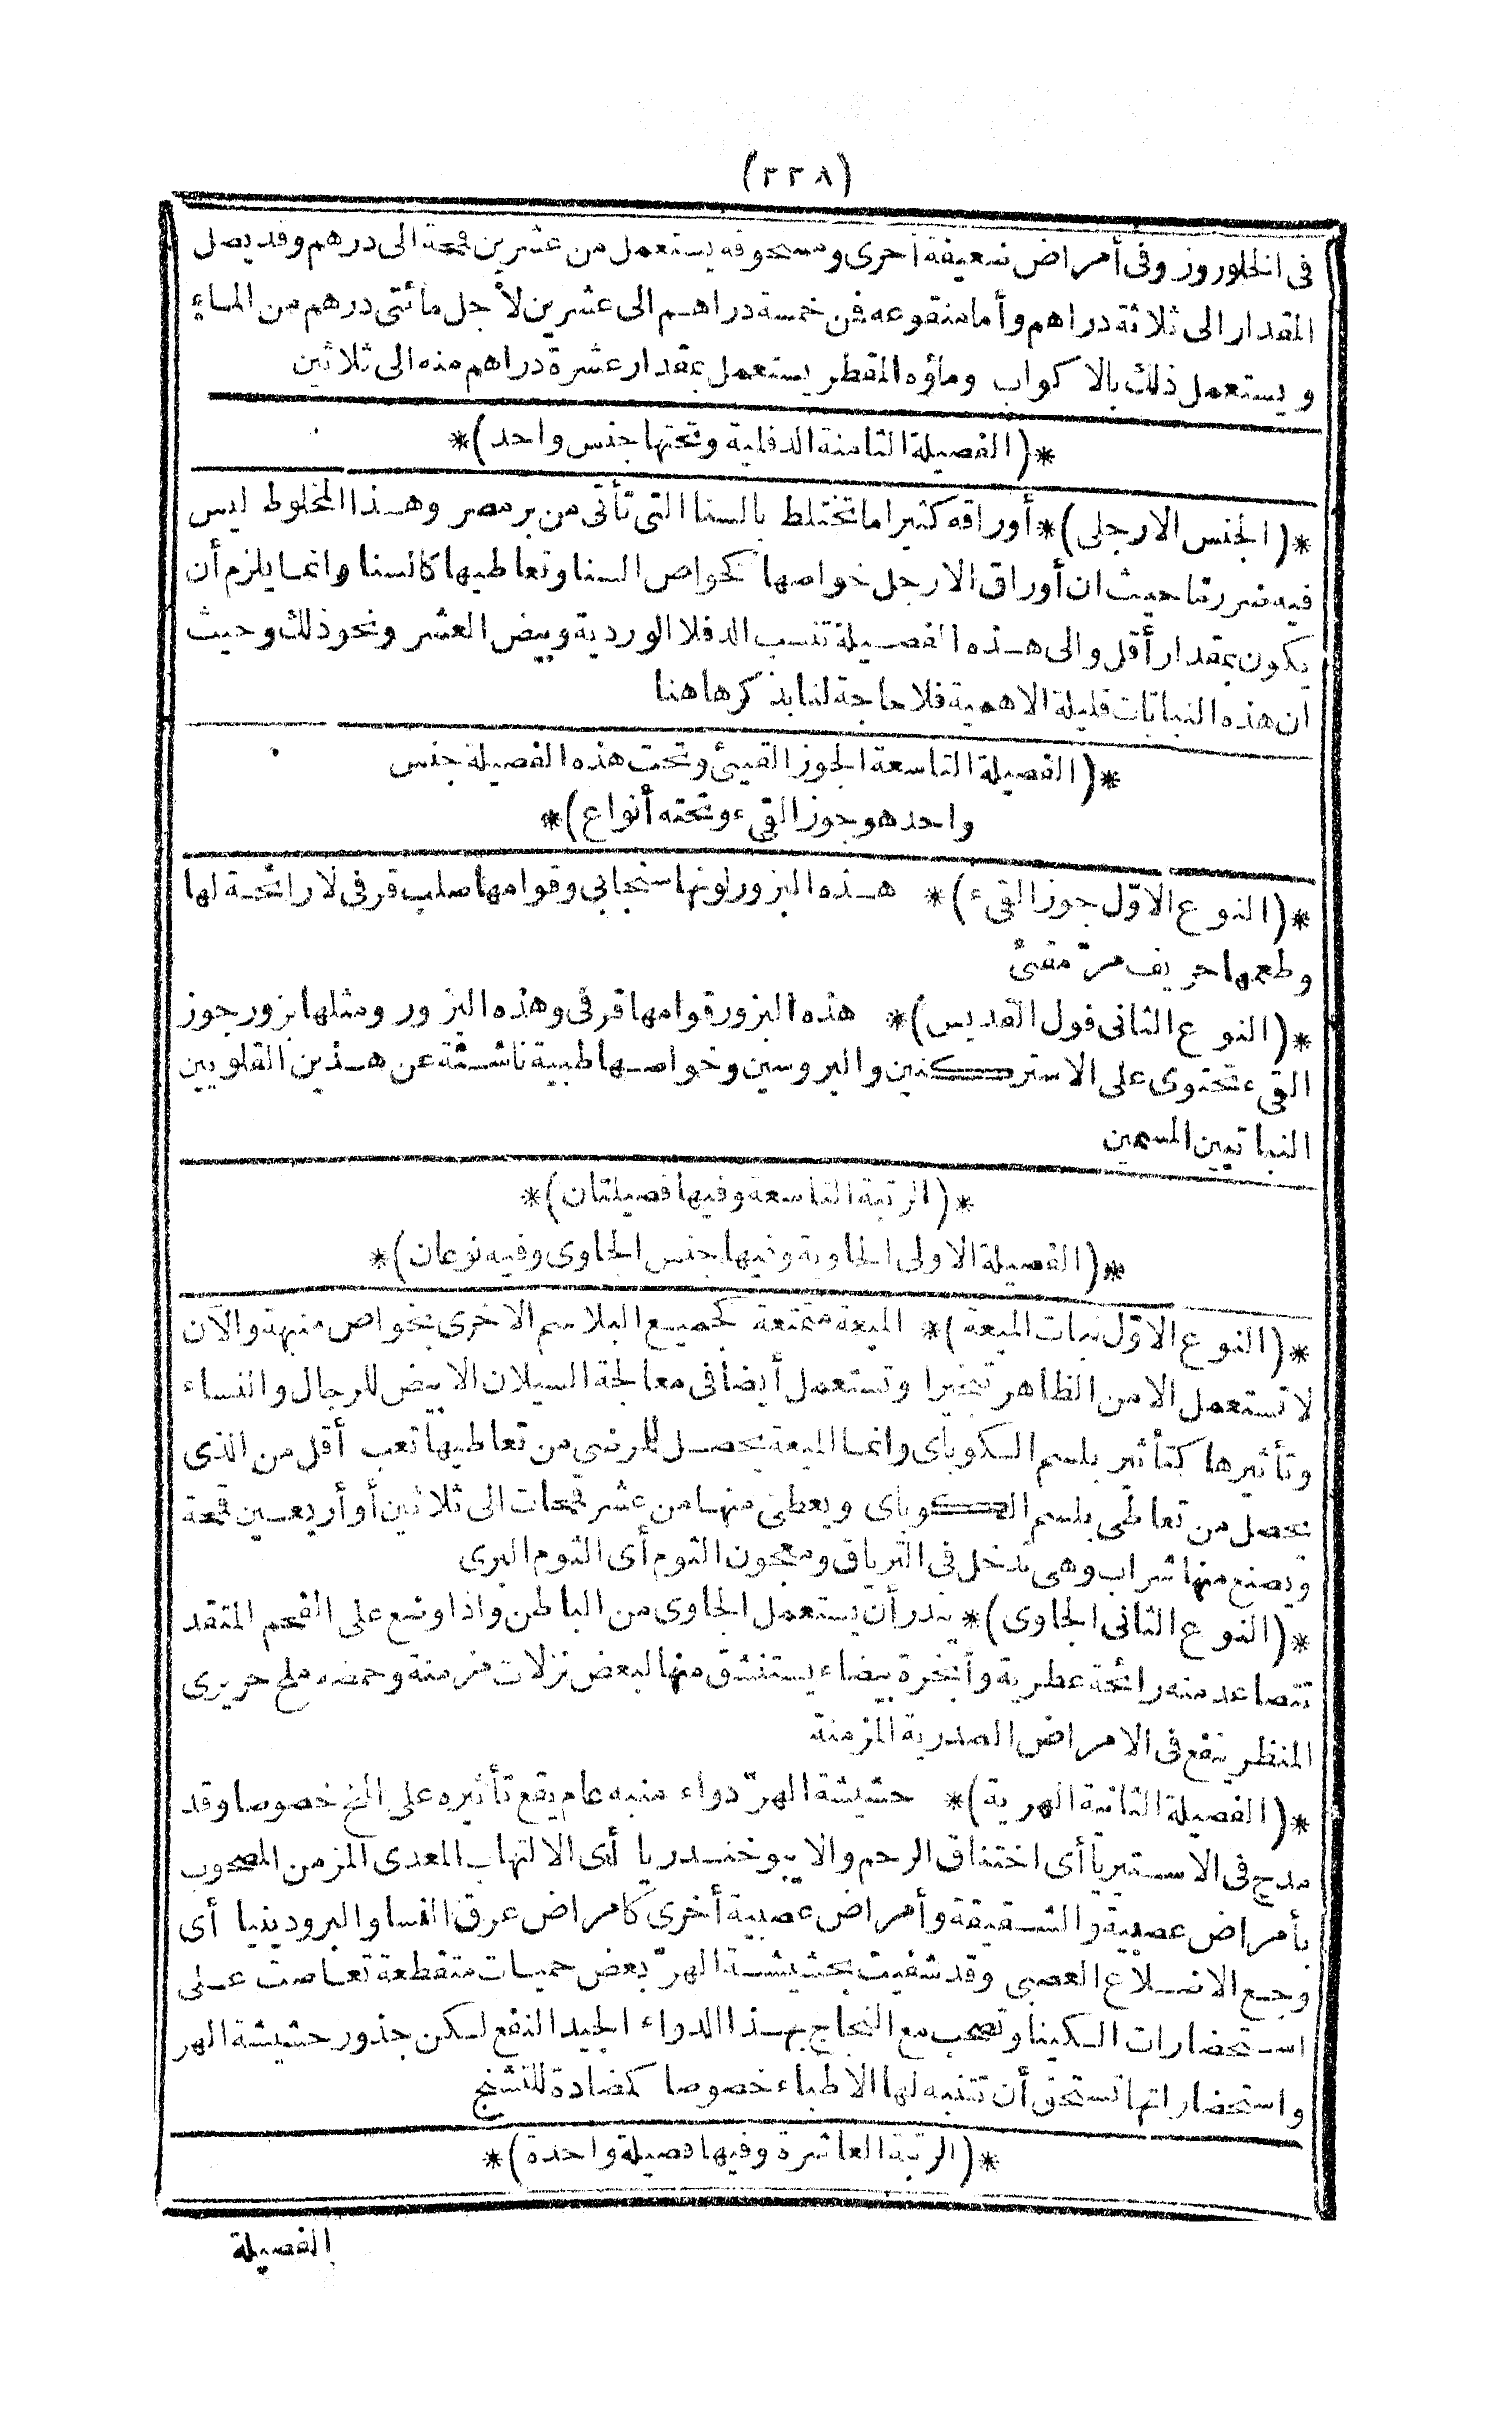 (٣٣٨)
فى الخلوروز وفى أمراض ضعيفة أخرى ومسحوقه يستعمل من عشرين قمحة الى درهم وقد يصل
المقدار الى ثلاثة دراهم وأما منقوعه فمن خمسة دراهم الى عشرين لأجل مائتى درهم من الماء
ويستعمل ذلك بالاكواب وماؤه المقطر يستعمل بمقدار عشرة دراهم منه الى ثلاثين
*(الفصيلة الثامنة الدفلية وتحتها جنس واحد)*
*(الجنس الارجلى)* أوراقه كثيرا ما تختلط بالسنا التى تأتى من بر مصر وهذا المخلوط ليس
فيه ضرر تما حيث ان أوراق الارجل خواصها كخواص السنا وتعاطيها كالسنا وانما يلزم أن
يكون بمقدار أقل والى هذه الفصيلة تنسب الدفلا الوردية وبيض العشر ونحو ذلك وحيث
ان هذه النباتات قليلة الاهمية فلا حاجة لنا بذكرها هنا
*(الفصيلة التاسعة الجوز القيئى وتحت هذه الفصيلة جنس
واحد هو جوز القىء وتحته أنواع)*
*(النوع الاوّل جوز القىء)* هذه البزور لونها سنجابى وقوامها صلب قرفى لا رائحة لها
وطعمها حريف مرّ مقئ
*(النوع الثانى فول القديس)* هذه البزور قوامها قرفى وهذه البزور ومثلها بزور جوز
القىء تحتوى على الاستركنين والبروسين وخواصها طبية ناشئة عن هذين القلويين
النباتيين المسمين
*(الرتبة التاسعة وفيها فصيلتان)*
*(الفصيلة الاولى الجاوية وفيها جنس الجاوى وفيه نوعان)*
*(النوع الاوّل نبات الميعة)* الميعة متمتعة كجميع البلاسم الاخرى بخواص منبهة والآن
لا تستعمل الا من الظاهر تبخيرا وتستعمل أيضا فى معالجة السيلان الابيض للرجال والنساء
وتأثيرها كتأثير بلسم الكوباى وانما الميعة يحصل للمرضى من تعاطيها تعب أقل من الذى
يحصل من تعاطى بلسم الكوباى ويعطى منها من عشر قمحات الى ثلاثين أو أربعين قمحة
ويصنع منها شراب وهى تدخل فى الترياق ومعجون الثوم أى الثوم البرى
*(النوع الثانى الجاوى)* يندر أن يستعمل الجاوى من الباطن واذا وضع على الفحم المتقد
تتصاعد منه رائحة عطرية وأبخرة بيضاء يستنشق منها لبعض نزلات مزمنة وحمضه ملح حريرى
المنظر ينفع فى الامراض الصدرية المزمنة
*(الفصيلة الثانية الهرية)* حشيشة الهرّ دواء منبه عام يقع تأثيره على المخ خصوصا وقد
مدح فى الاستيريا أى اختناق الرحم والايبوخندريا أى الالتهاب المعدى المزمن المصحوب
بأمراض عصبية والشقيقة وأمراض عصبية أخرى كامراض عرق النسا والبرودينيا أى
وجع الاضلاع العصبى وقد شفيت بحشيشة الهرّ بعض حميات متقطعة تعاصت على
استحضارات الكينا وتصحب مع النجاح بهذا الدواء الجيد النفع لكن جذور حشيشة الهر
واستحضاراتها تستحق أن تتنبه لها الاطباء خصوصا كمضادة للتشنج
*(الرتبة العاشرة وفيها فصيلة واحدة)*
الفصيلة